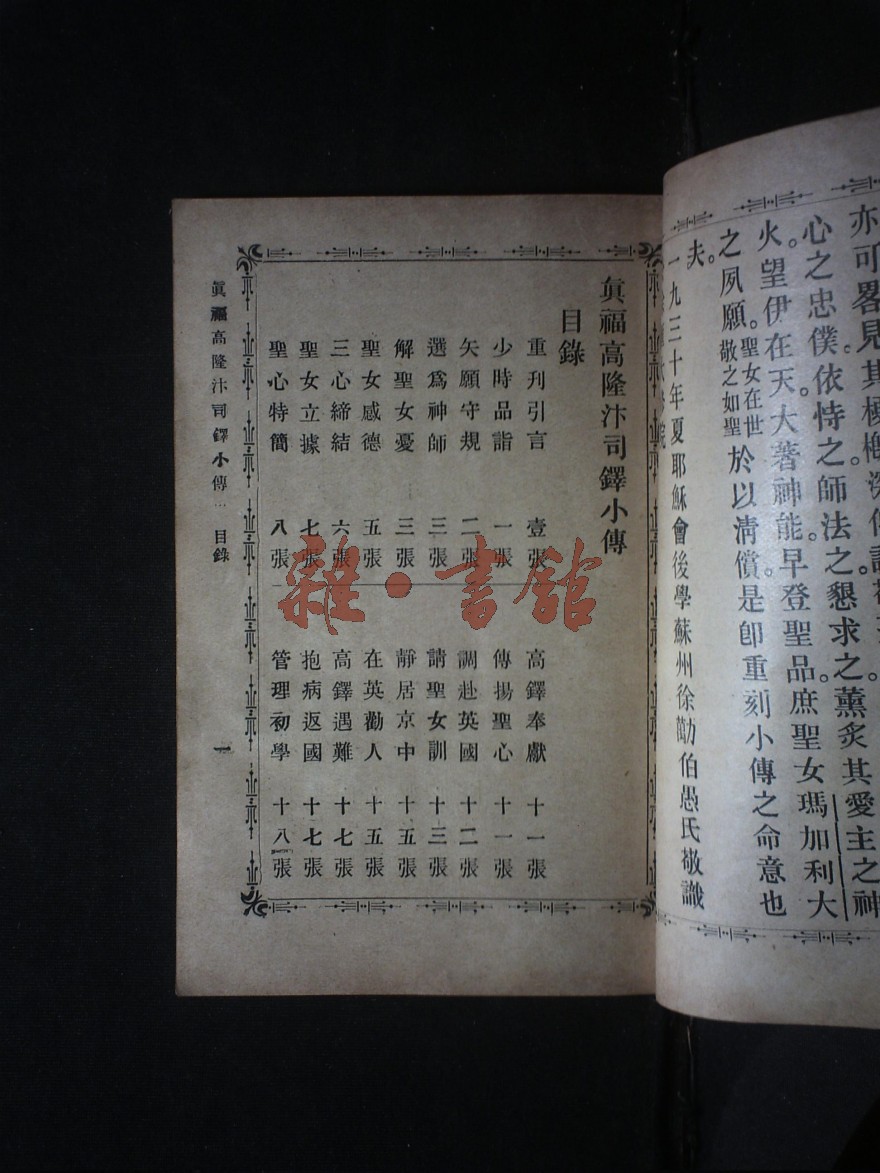 亦可畧見其梗概
心之忠僕。依恃之師法之。懇求之。薰炙其愛主之神
火。望伊在天。大著神能。早登聖品。庶聖女瑪加利大
之夙願。聖女在世敬之如聖於以淸償。是卽重刻小傳之命意也
夫。
一九三十年夏耶穌會後學蘇州徐勱伯愚氏敬識
眞福高隆汴司鐸小傳
目錄
重刊引言 壹張
少時品詣 一張
矢願守規 二張
選爲神師 三張
解聖女憂 三張
聖女感德 五張
三心締結 六張
聖女立據 七張
聖心特簡 八張
高鐸奉獻 十一張
傳揚聖心 十一張
調赴英國 十二張
請聖女訓 十三張
靜居京中 十五張
在英勸人 十五張
高鐸遇難 十七張
抱病返國 十七張
管理初學 十八張
眞福高隆汴司鐸小傳 目錄
一
雜·書館